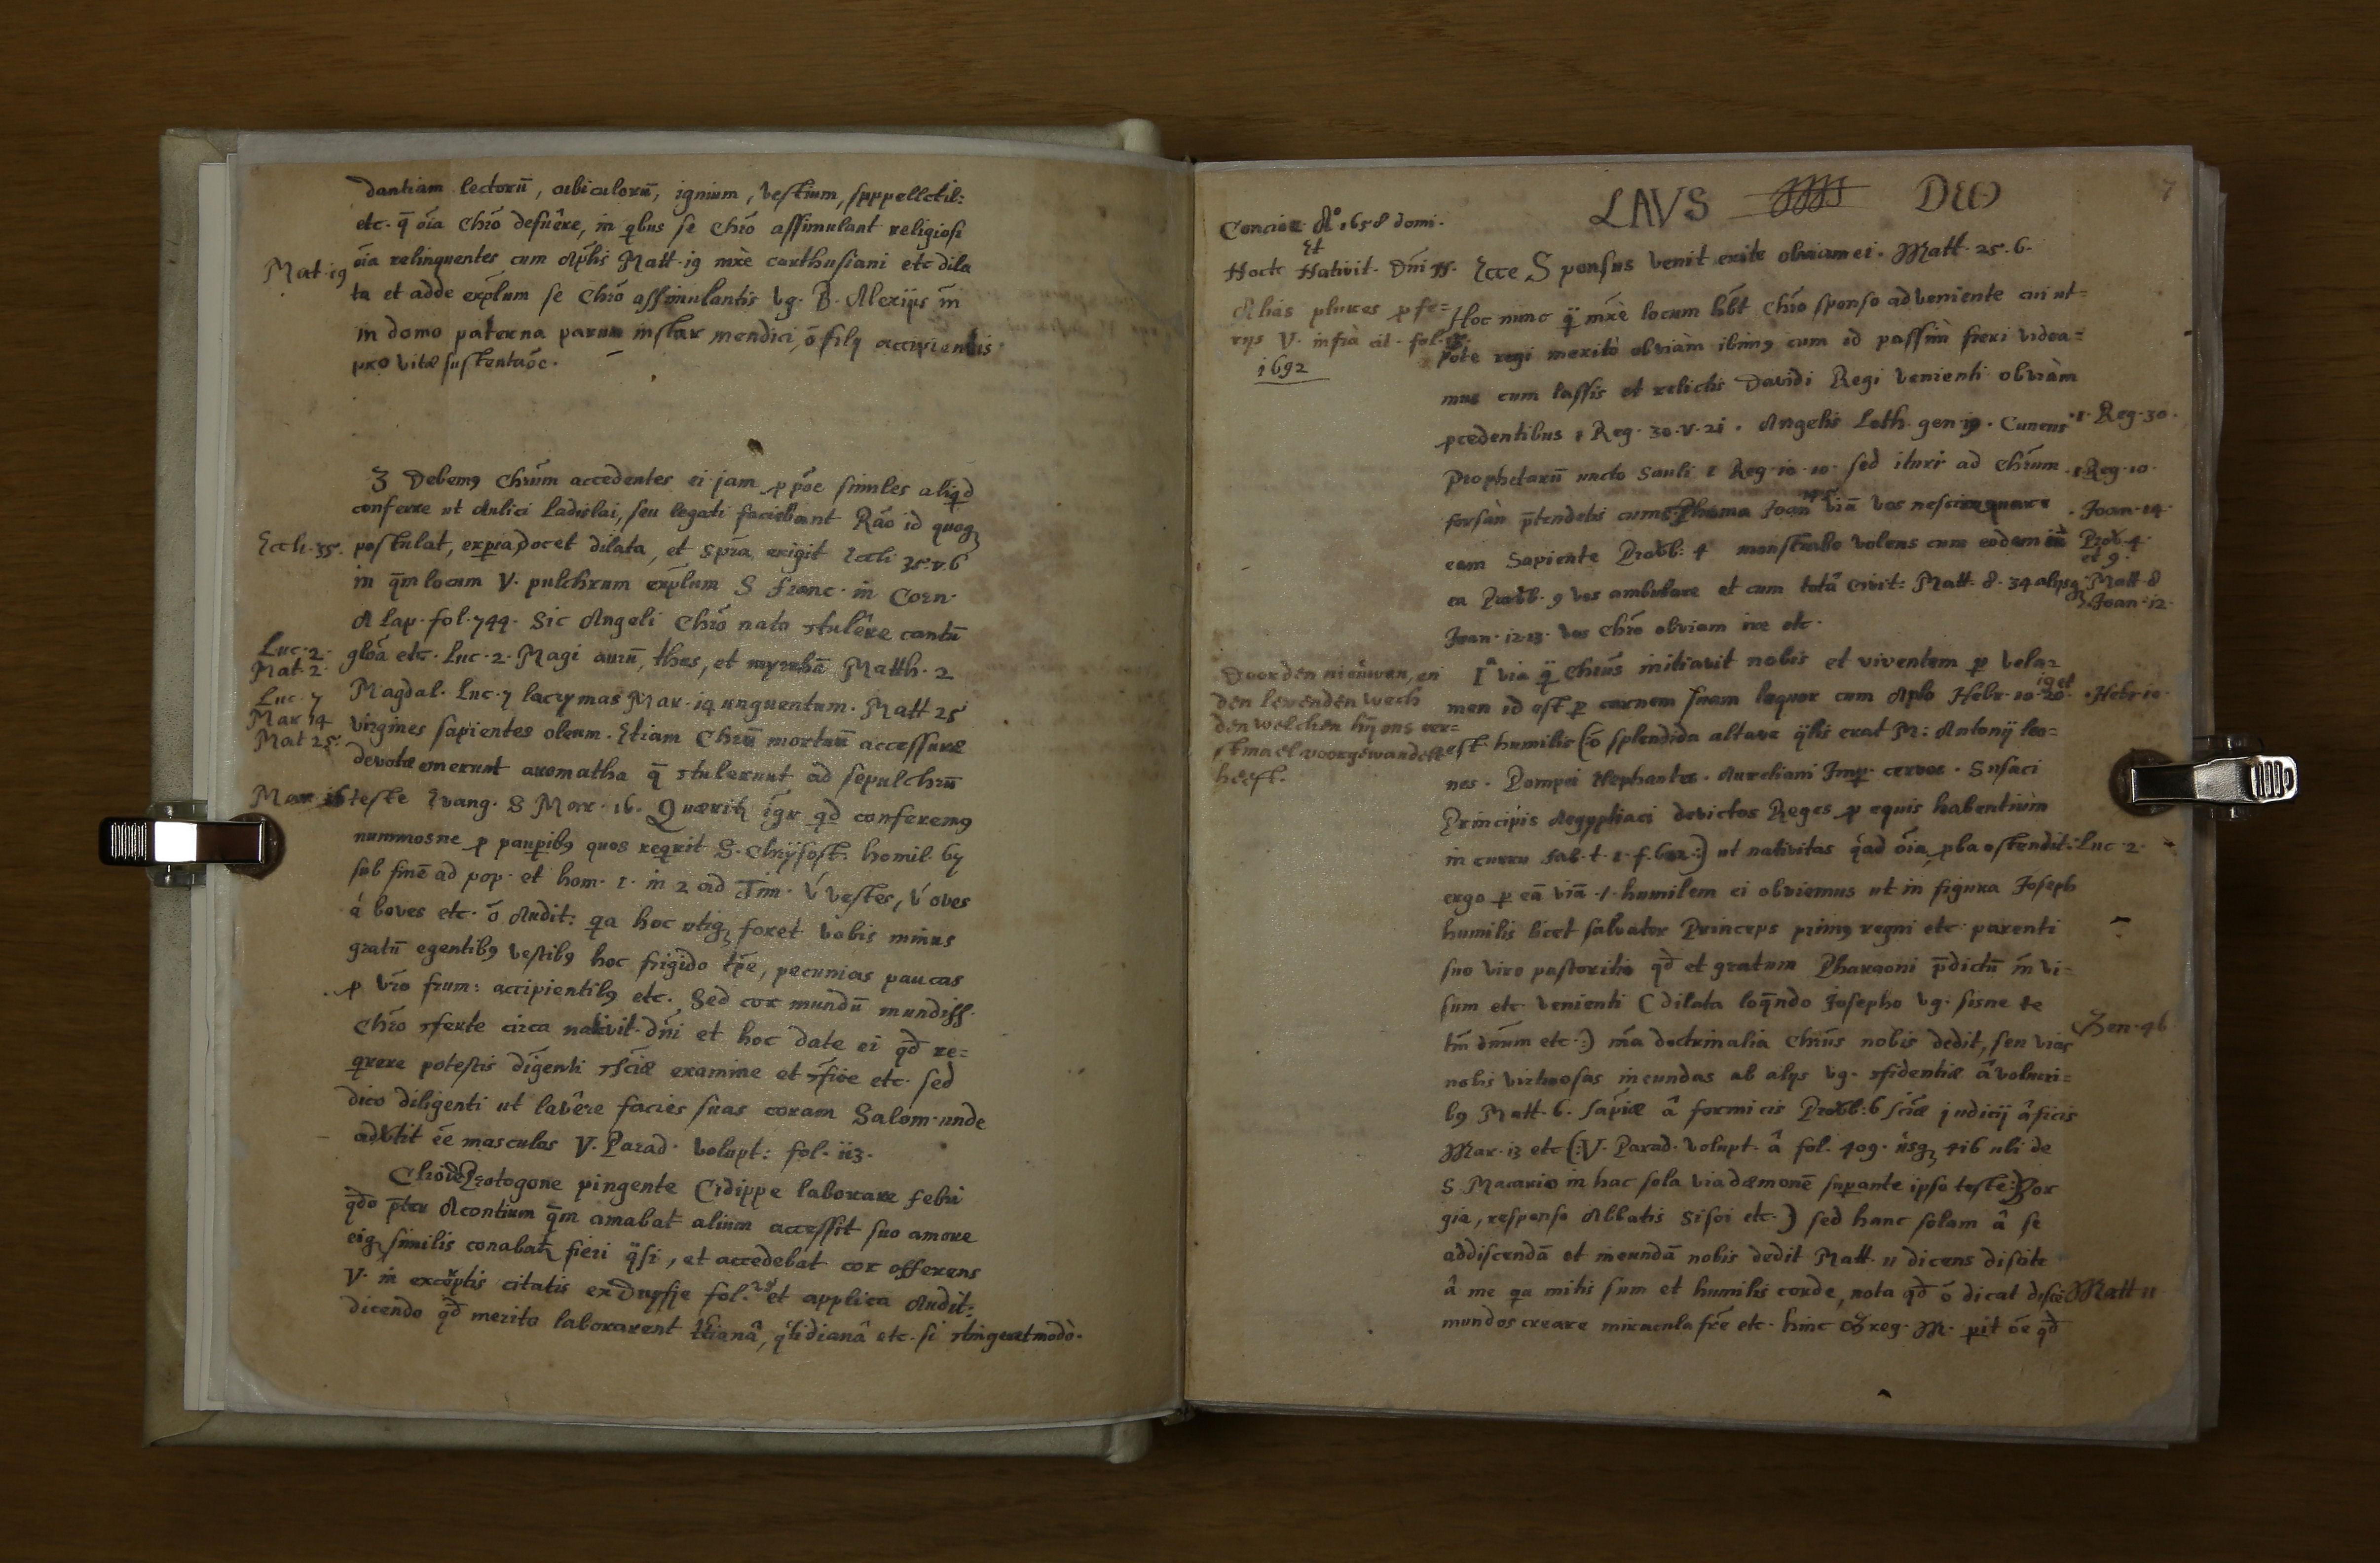 dantiam lectorū, cubiculorū, ignium, vestium, suppellectil:
etc. q̄ oīa Chrō defuêre, in qbus se Chrō assimulant religiosi
Mat. 19
oīa relinquentes cum Aplis Matt. 19 mxè carthusiani etc dila
ta et adde explum se Chrō assimulantis vg. B. Alexijs m̄
in domo paterna parum instar mendici, ō filij accipientis
pro vitæ sustentaōe.
3 Debemꝰ Chrūm accedentes ei jam ꝓ pōe similes aliqd
conferre ut Aulici Ladislai, seu legati faciebant Rāo id quoqꝫ
Eccli. 35.
postulat, exp̄ia docet dilata, et Spīa exigit Eccli 35. v. 6
in q̄m locum V. pulchrum explum S Franc. in Corn.
A Lap. fol. 744. Sic Angeli Chrō nato ɔtulêre cantū
Luc. 2.
glōa etc. Luc. 2. Magi aurū, thus, et myrrhā Matth. 2
Mat. 2.
Luc. 7
Magdal. Luc. 7 lacrymas Mar. 14 unguentum. Matt 25
Mar 14
virgines sapientes oleum. Etiam Chrū mortuū accessuræ
Mat 25.
devotæ emerunt aromatha q̄ ɔtulerunt ad sepulchrū
Mar 16
teste Evang. S Mar. 16. Quæritꝫ igr qd conferemꝰ
nummosne ꝑ paupibꝰ quos reqrit S. Chrÿsost. homil. 67
sub finē ad pop. et hom. 1. in 2 ad Tim. v́ vestes, v́ oves
á boves etc. ō Audit: qa hoc utiqꝫ foret vobis minus
gratū egentibꝰ vestibꝰ hoc frigido tp̄e, pecunias paucas
ꝓ vrō frum: accipientibꝰ etc. Sed cor mundū mundiss.
Chrō ɔferte circa nativit. dn̄i et hoc date ei qd re=
qrere potestis diḡenti ɔsciæ examine et ɔfioe etc. sed
dico diligenti ut lavêre facies suas coram Salom. unde
advtit ēe masculas V. Parad. volupt: fol. 113.
Protogone pingente Cidippe laborare febri
qdo p̄ter Acontium q̄m amabat alium accessit suo amore
eiqꝫ similis conabatꝫ fieri q̈si, et accedebat cor offerens
V. in excerptis citatis ex fol. 28 et applica Audit:
dicendo qd merito laborarent tianâ, qtidianâ etc. si modò.
7
LAVS DEO
Conciæ Aº 1658 domi.
Et
Nocte Nativit. Dn̄i
Ecce Sponsus venit exite obviam ei. Matt. 25. 6.
Alias plures ꝑ fe=
rijs V. infrà cit. fol.
1692
Hoc nunc q̈ mxè locum hbt Chrō sponso adveniente cui ut=
pote regi meritò obviàm ibimꝰ cum id passim fieri videa=
mus cum lassis et relictis Davidi Regi venienti obviàm
ꝓcedentibus 1 Reg. 30. v. 21. Angelis Loth. gen. 19. Cuneus
1. Reg. 30.
Prophetarū uncto Sauli 1 Reg. 10. 10. sed ituri ad Chrūm
1 Reg. 10.
forsàn p̄tendetis cum Thoma Joan 14. 5 viā vos nescire quare
Joan. 14.
eam Sapiente Prob: 4 monstrabo volens cum eodem
Prob. 4.
et 9.
ea Prob. 9 vos ambulare et cum totâ Civit: Matt. 8. 34 alijsqꝫ
Matt. 8
Joan. 12.
Joan. 12. 13. vos Chrō obviam ire etc.
Door den nieuwen, en
den levenden wech
den welchen hÿ ons eer=
stmael voorgewandelt
heeft.
1ᵃ via q̈ Chrūs initiavit nobis et viventem ꝑ vela=
men id est ꝑ carnem suam loquor cum Aplo Hebr. 10. 19 et 20.
Hebr 10.
est humilis (ō splendida altave q̈lis erat M: Antonij leo=
nes. Pompei Elephantes. Aureliani Imp. cervos. Susaci
Principis Aegyptiaci devictos Reges ꝑ equis habentium
in curru fab. t. 1. f. 602.:) ut nativitas qad oīa ꝓba ostendit:
Luc. 2.
ergo ꝑ eā viā .1. humilem ei obviemus ut in figura Joseph
humilis licet salvator Princeps primꝰ regni etc. parenti
suo viro pastoritio qd et gratum Pharaoni p̄dictū m̄ vi=
sum etc. venienti (dilata loqndo Josepho vg. sisne te
Gen. 46
tm̄ dnūm etc.:) m̄a doctrinalia Chrūs nobis dedit, seu vias
nobis virtuosas ineundas ab alijs vg. ɔfidentiæ â volucri=
bꝰ Matt. 6. sapiæ â formicis Prob: 6 sciæ judicij â ficis
Mar. 13 etc (:V. Parad. volupt. â fol. 409. usqꝫ 416 ubi de
S Macario in hac sola via dæmonē supante ipso teste: Bor
gia, responso Abbatis Sisoi etc.) sed hanc solam â se
addiscendā et ineundā nobis dedit Matt. 11 dicens discite
â me qa mitis sum et humilis corde, nota qd ō dicat disce
Matt 11
mundos creare miracula frē etc. hinc Greg. M. ꝑit ōē qd